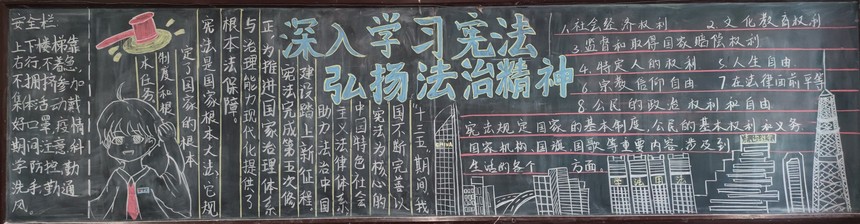 深入学习宪法
弘扬法治精神
安全栏
上下楼梯靠
右行,不着急,
不拥挤参加
集体活动戴
好口罩,疫情
期间注意科
学防控,勤
洗手勤通
风。
"十三五"期间,我
国不断完善以
宪法为核心的
中国特色社会
主义法律体系
助力法治中国
建设踏上新征程。
宪法完成第五次修
正,为推进国家治理体系
与治理能力现代化提供了
根本法保障。
宪法是国家根本大法,它规
定了国家的根本
制度和根
本任务
1.社会经济权利 2.文化教育权利
3.监督和取得国家赔偿权利
4.特定人的权利 5.人生自由
6.宗教信仰自由 7在法律面前平等
8.公民的政治权利和自由
宪法规定国家的基本制度,公民的基本权利和义务
国家机构,国旗国歌等重要内容,涉及到
生活的各个方面.